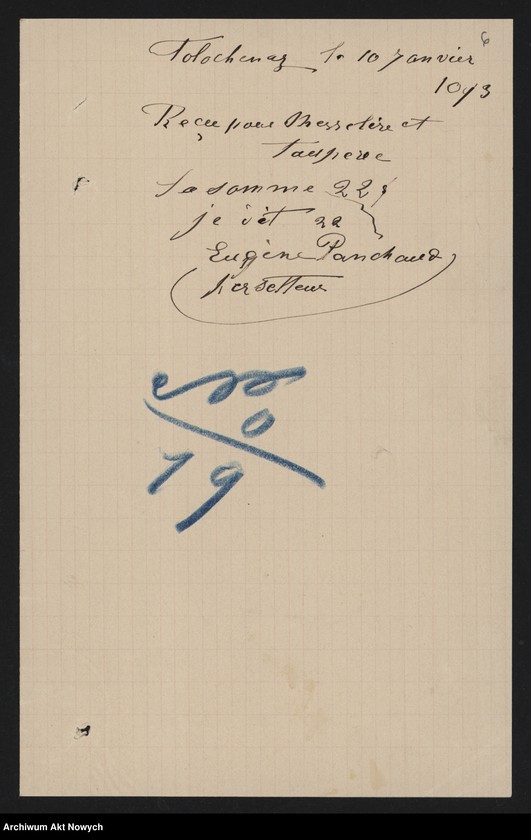 6
Tolochenaz le 10 Janvier
1893
Reçu pour Messelire et
Tauperie
La somme 22 f
je dit 22
Eugène Panchaud
19
Archiwum Akt Nowych